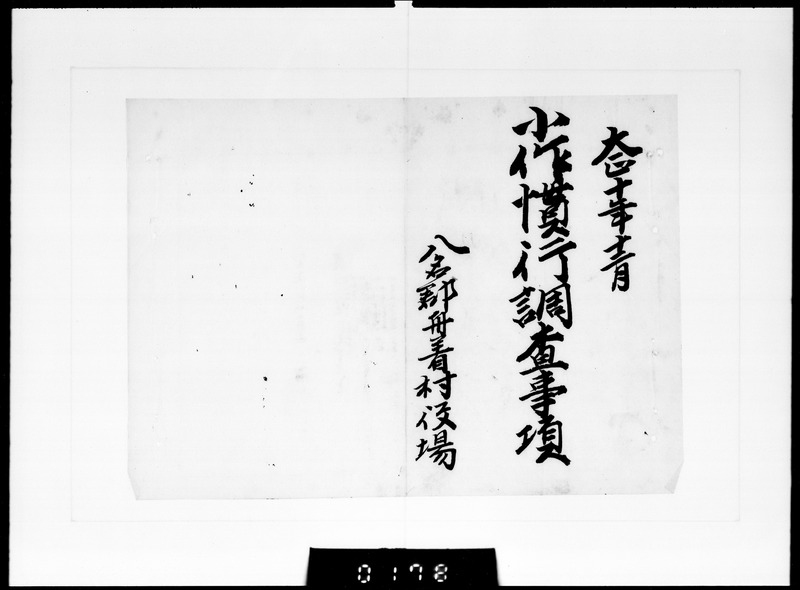 大正十年十二月
小作慣行調査事項
八名郡舟着村役場
0178